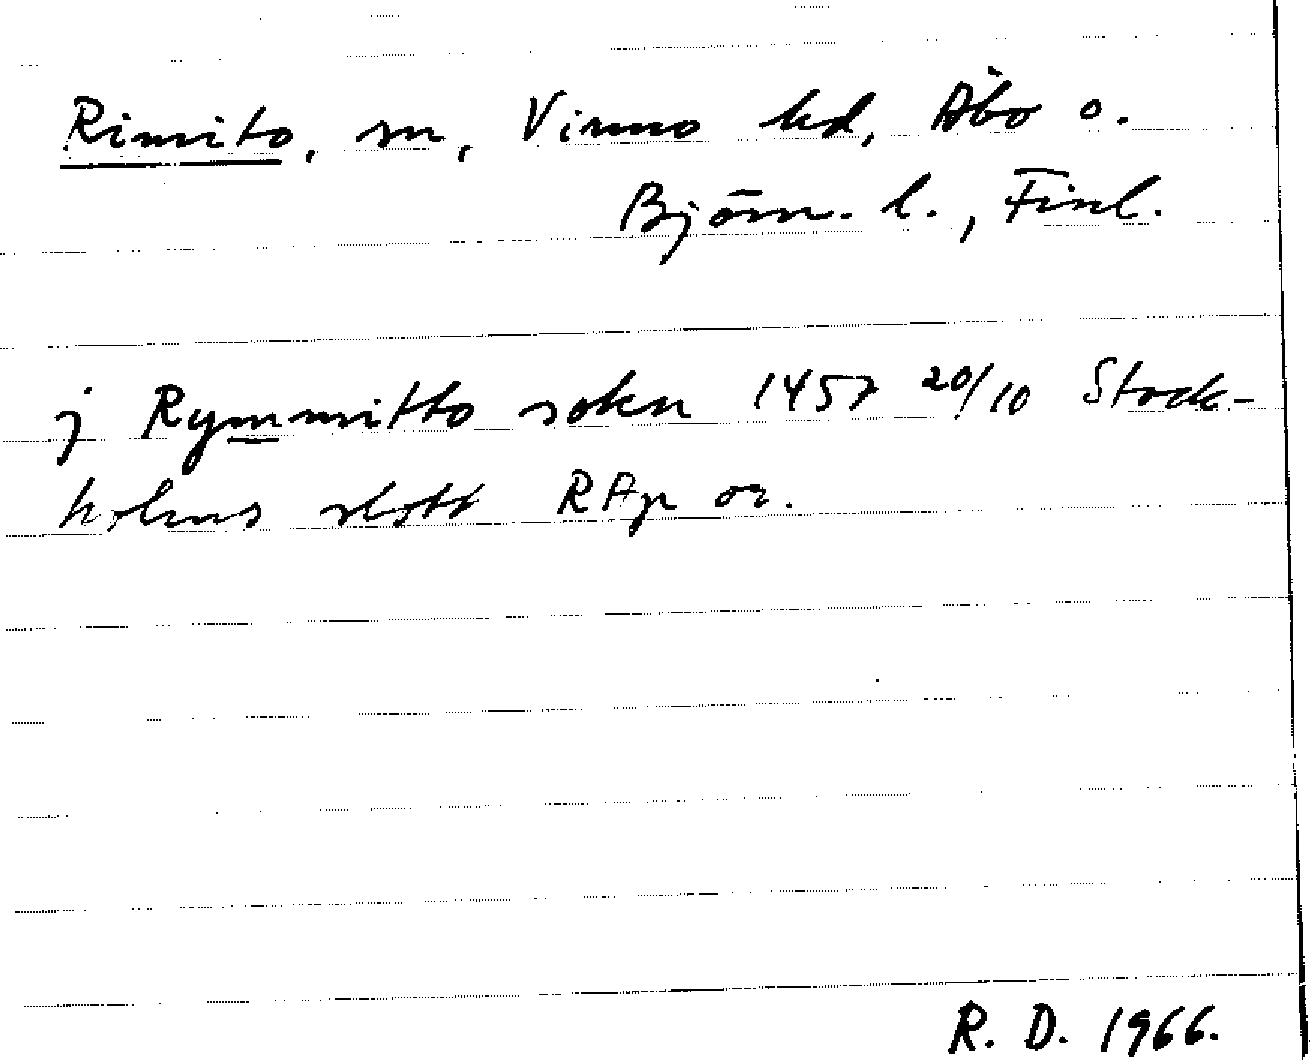 Rimito, sn, Virmo hd, Åbo o.
Björn. l., Finl.
j Rymmitto sokn 1457 20/10 Stock-
holms slott RAp or.
R. D. 1966.